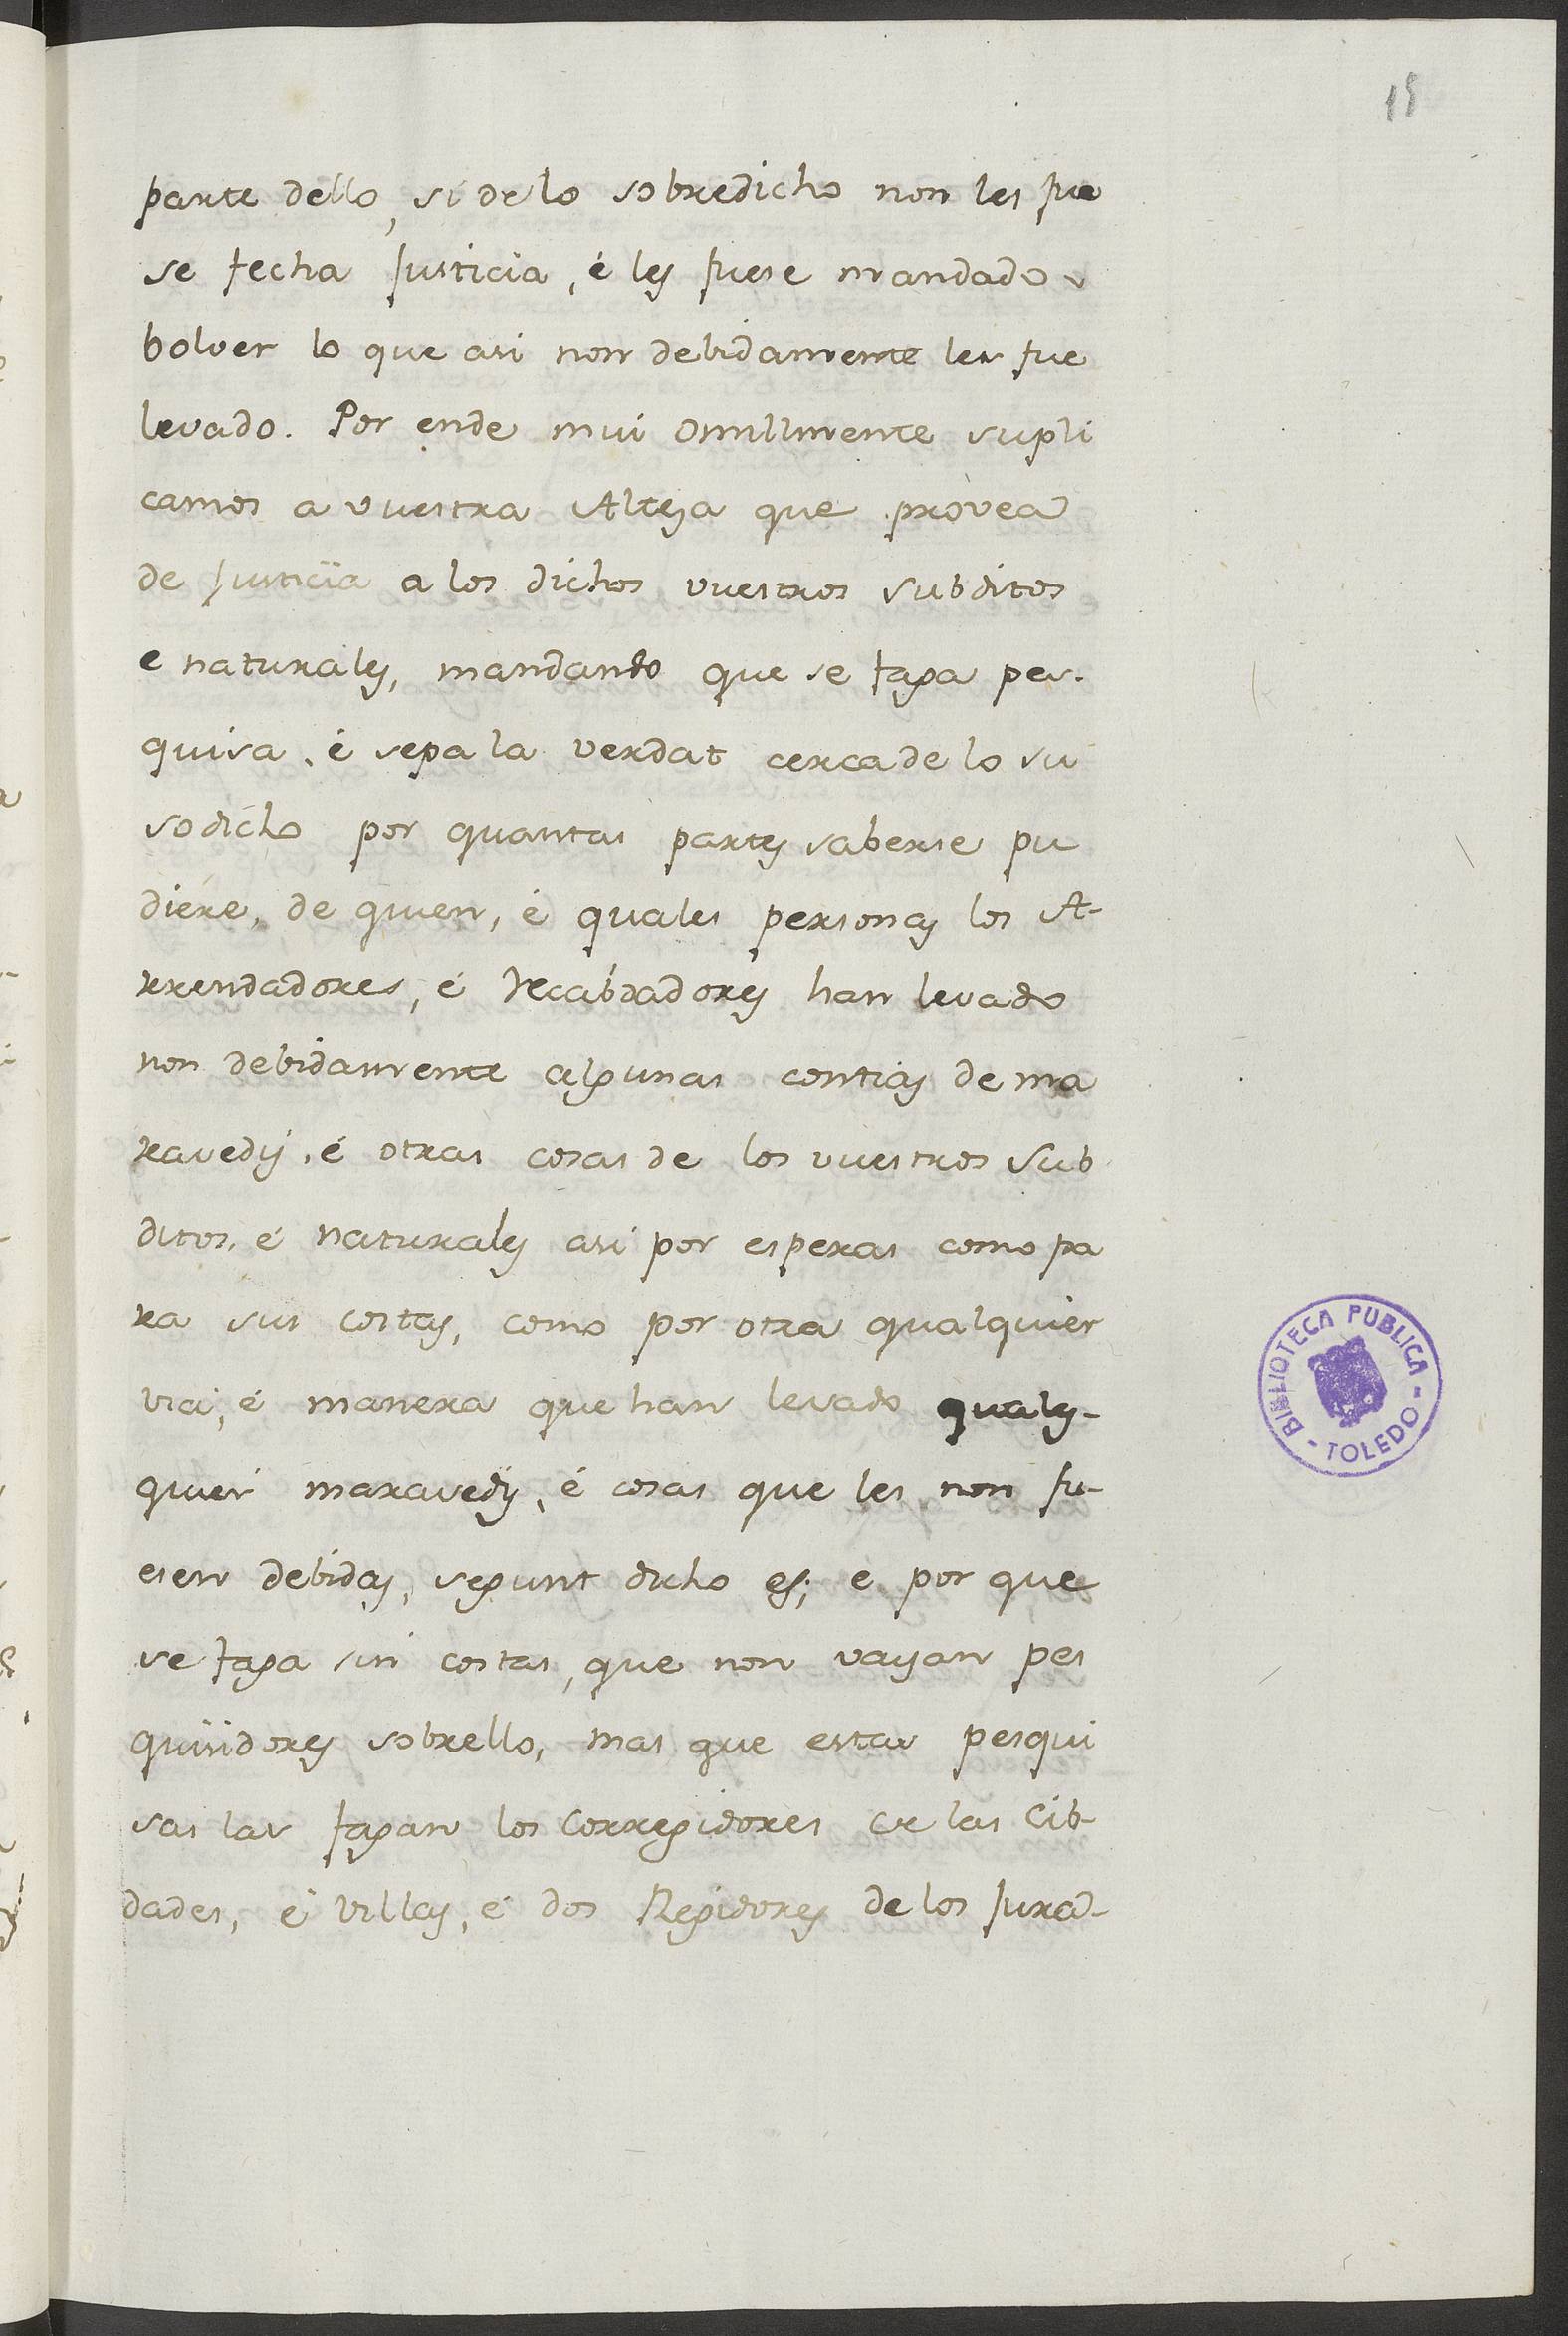 15
parte dello, si de lo sobredicho non les fue
se fecha Justicia, é les fuese mandado
bolver lo que asi non debidamente les fue
levado. Por ende mui omillmente supli
camos a vuestra Alteza que provea
de Justicia a los dichos vuestros subditos
e naturales, mandando que se faga pes-
quisa, é sepa la verdat cerca de lo su
sodicho por quantas partes saberse pu
diere, de quien, é quales personas los A-
rrendadores, é Recabdadores han levado
non debidamente algunas contias de ma
ravedis, é otras cosas de los vuestros sub
ditos, é naturales asi por esperas como pa
ra sus costas, como por otra qualquier
via, é manera que han levado quales-
quier maravedis, é cosas que les non fu-
esen debidas, segunt dicho es; e por que
se faga sin costas, que non vayan pes
quisidores sobrello, mas que estas pesqui
sas las fagan los Corregidores de las Cib-
dades, é Villas, é dos Regidores de los Jura-
BIBLIOTECA PUBLICA
- TOLEDO -